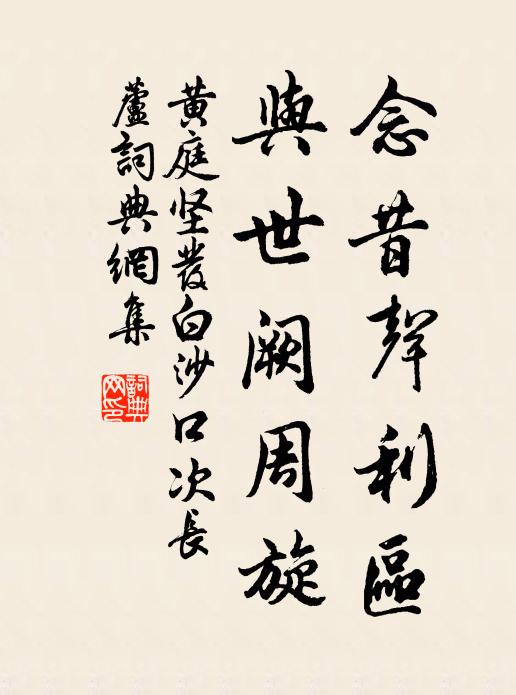 念昔聲利區
與世闕周旋
黄庭坚發白沙口次長
蘆詞典網集
詞典网印